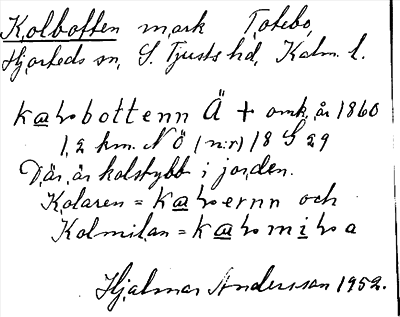 Kolbotten mark Totebo,
Hjorteds sn, S. Tjusts hd, Kalm. l.
kaƚbottenn Ä + omk. år 1860
1,2 km. NÖ (n:r) 18 G 29
Där är kolstybb i jorden.
Kolaren = kaƚernn och
Kolmilan = kaƚmiƚa
Hjalmar Andersson 1952.